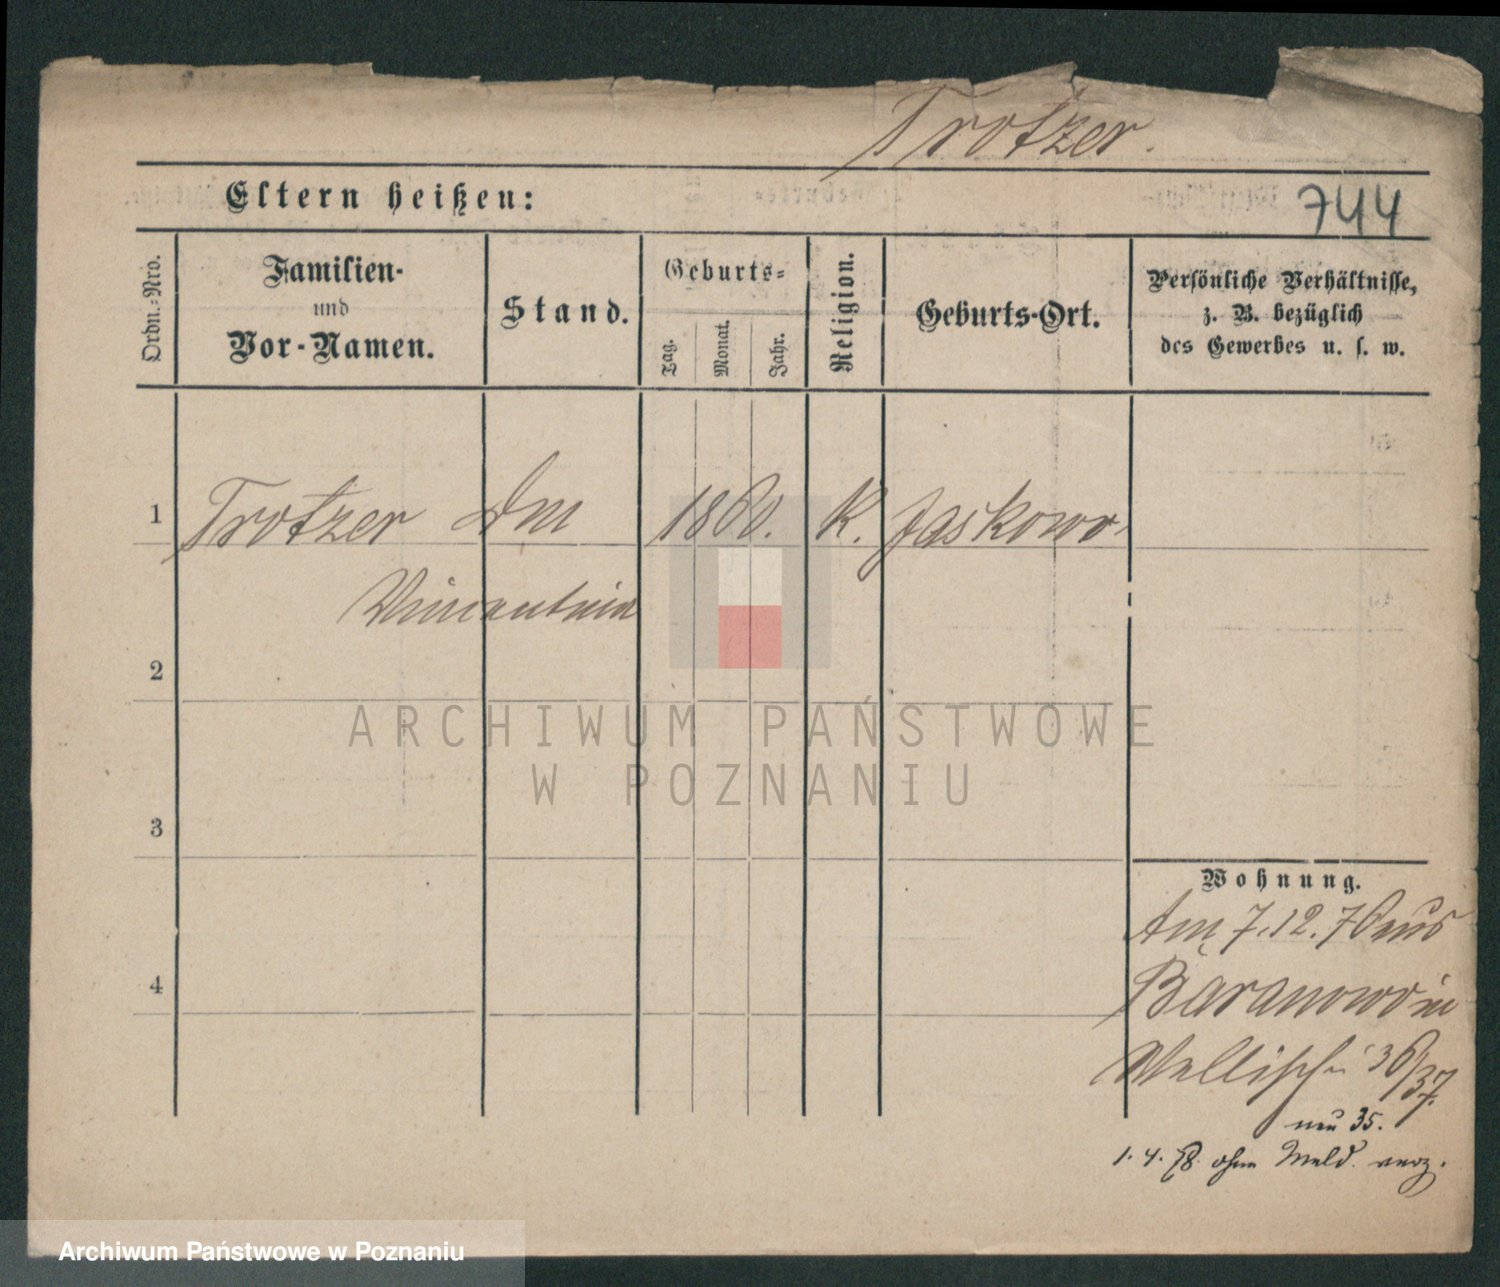 Trotzer.
Eltern heißen:
744
Ordn.-Nro.
Familien-
und
Vor-Namen.
Stand.
Geburts-
Tag.
Monat.
Jahr.
Religion.
Geburts-Ort.
Persönliche Verhältnisse,
z. B. bezüglich
des Gewerbes u. s. w.
1 Trotzer 1860. K. Jaskowo
2
3
4
ARCHIWUM PAŃSTWOWE
W POZNANIU
Wohnung.
Am 7.12.76 aus
Baranowo in
Wallischei 36/37.
neu 35.
1. 4. 78. ohne Meld. verz.
Archiwum Państwowe w Poznaniu